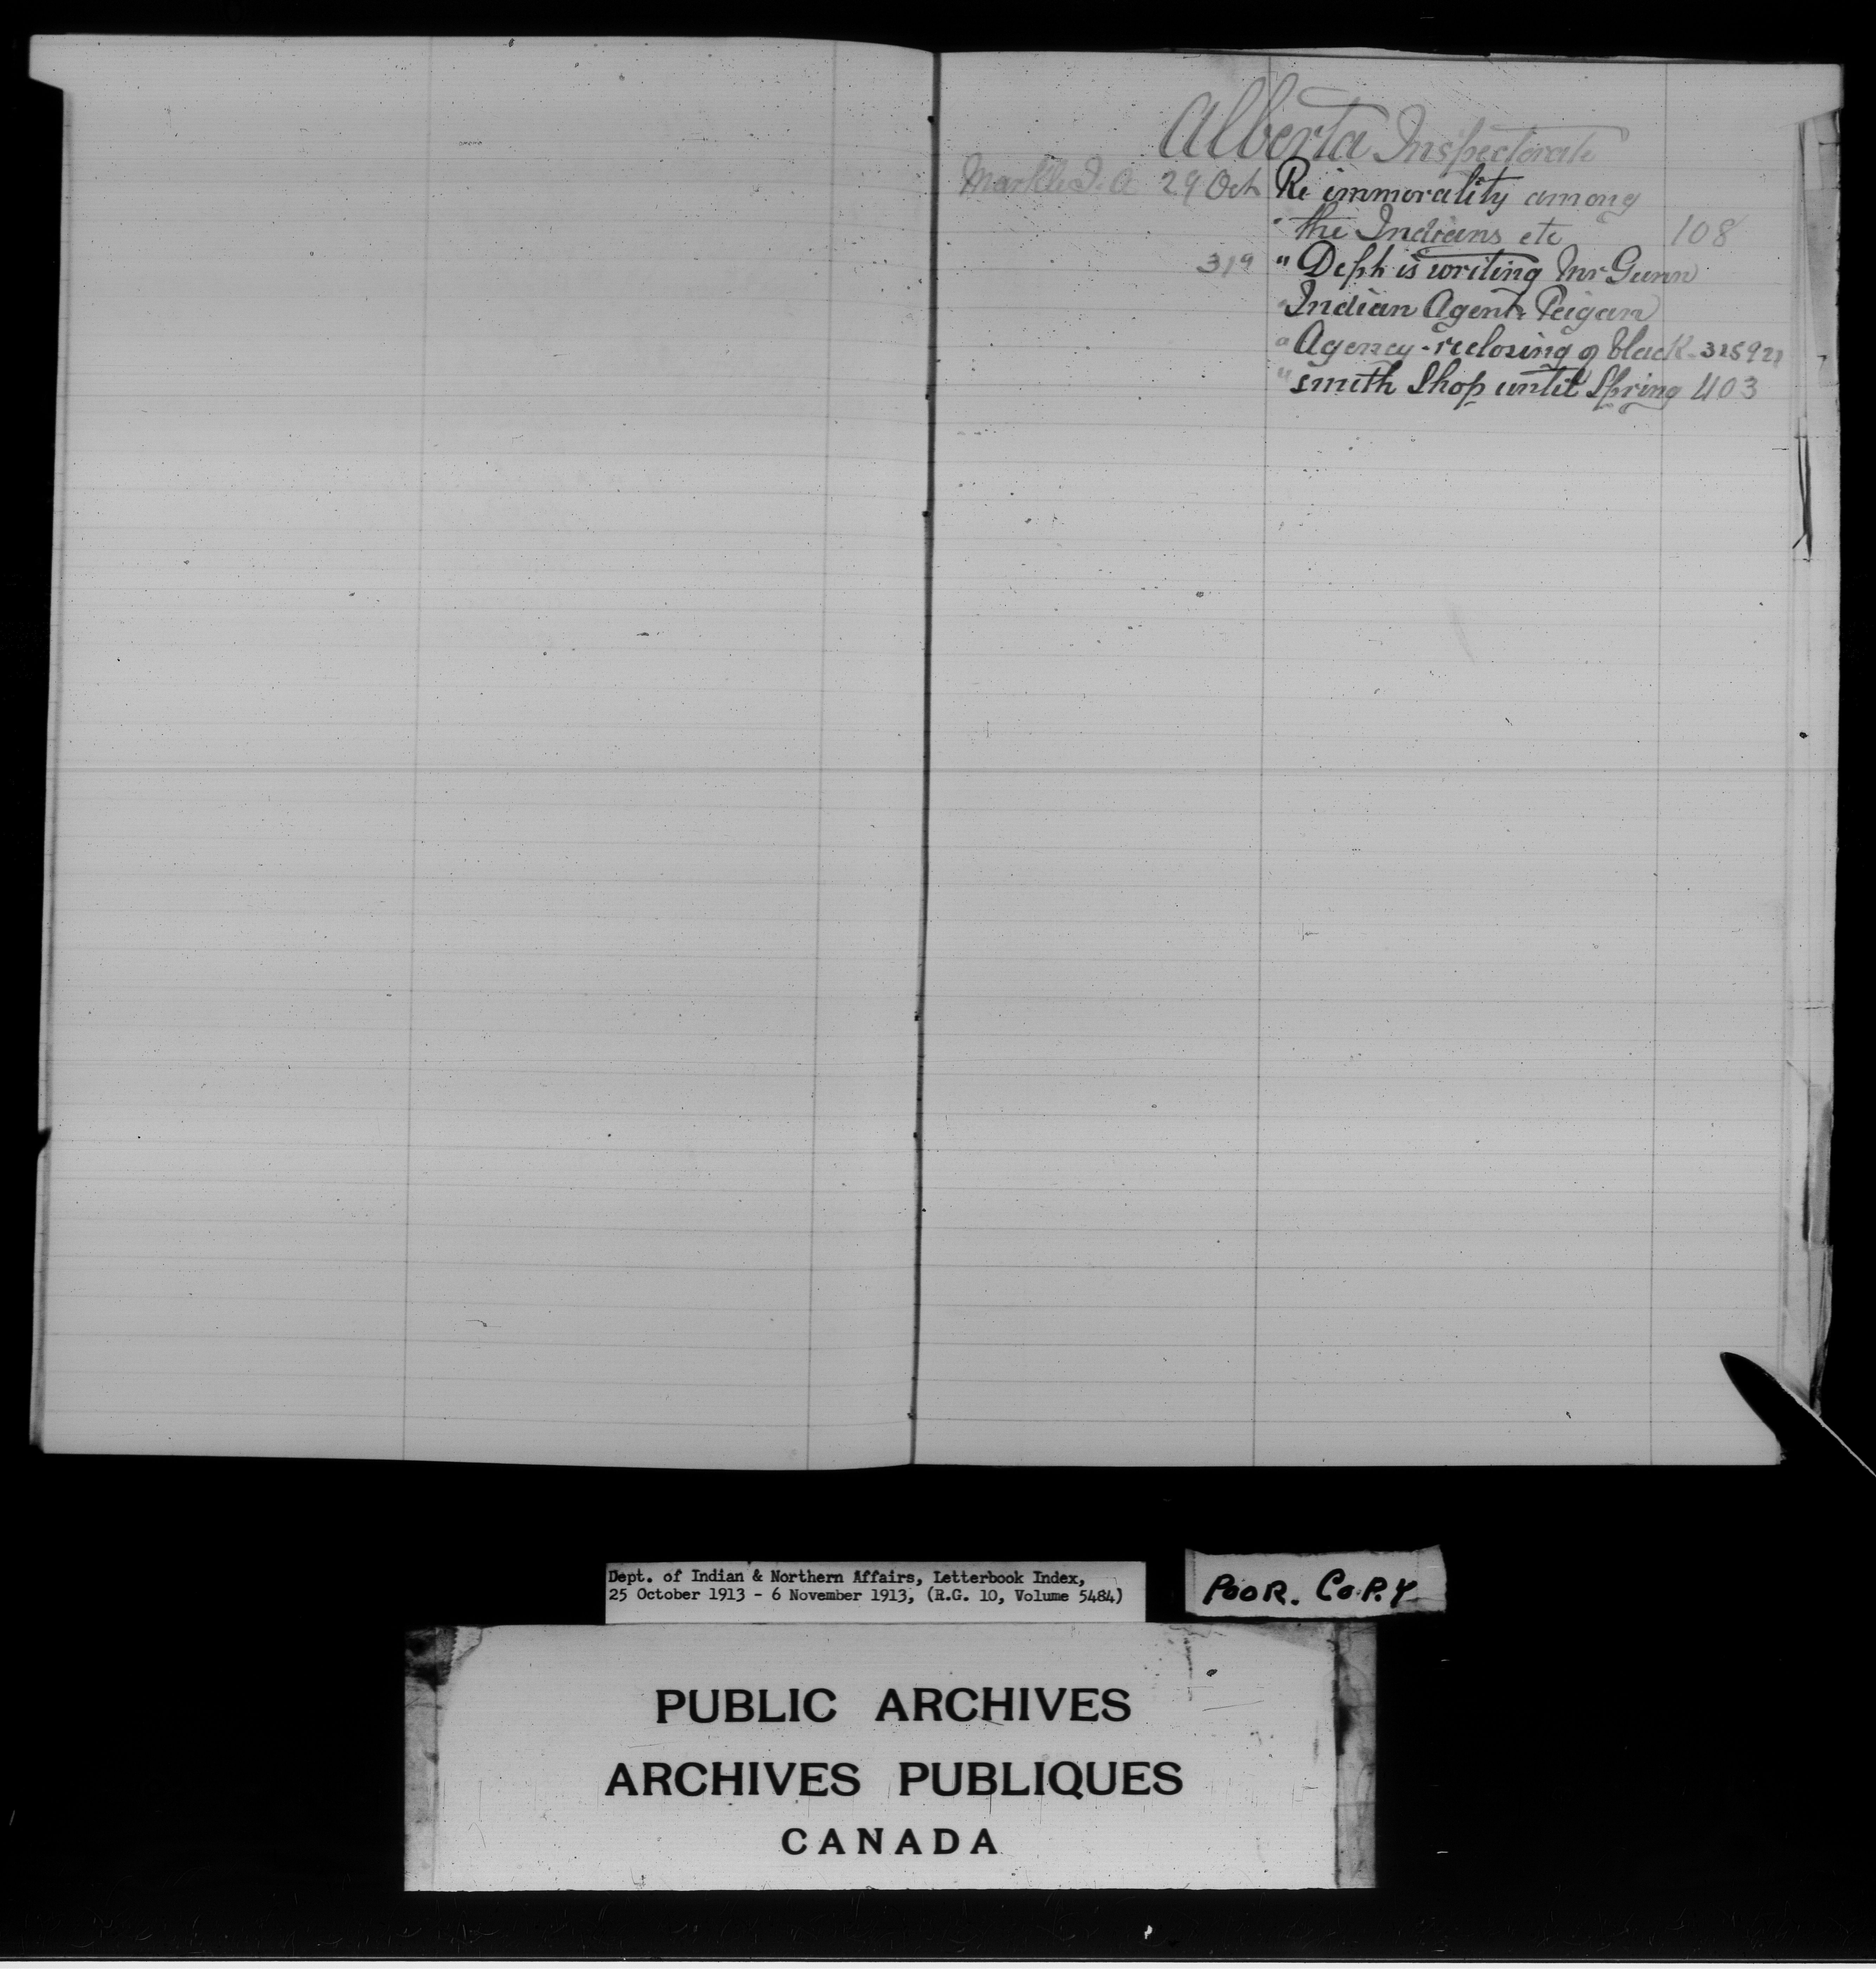 Alberta Inspectorate
Markle J. A 29 Oct Re immorality among
" the Indians etc 108
31st " Dept is writing Mr Gunn
" Indian Agent. Peigan
" Agency - reclosing of black - 315921
" smith Shop until Spring 403
Dept. of Indian & Northern Affairs, Letterbook Index,
25 October 1913 - 6 November 1913, (R.G. 10, Volume 5484)
POOR. COPY
PUBLIC ARCHIVES
ARCHIVES PUBLIQUES
CANADA